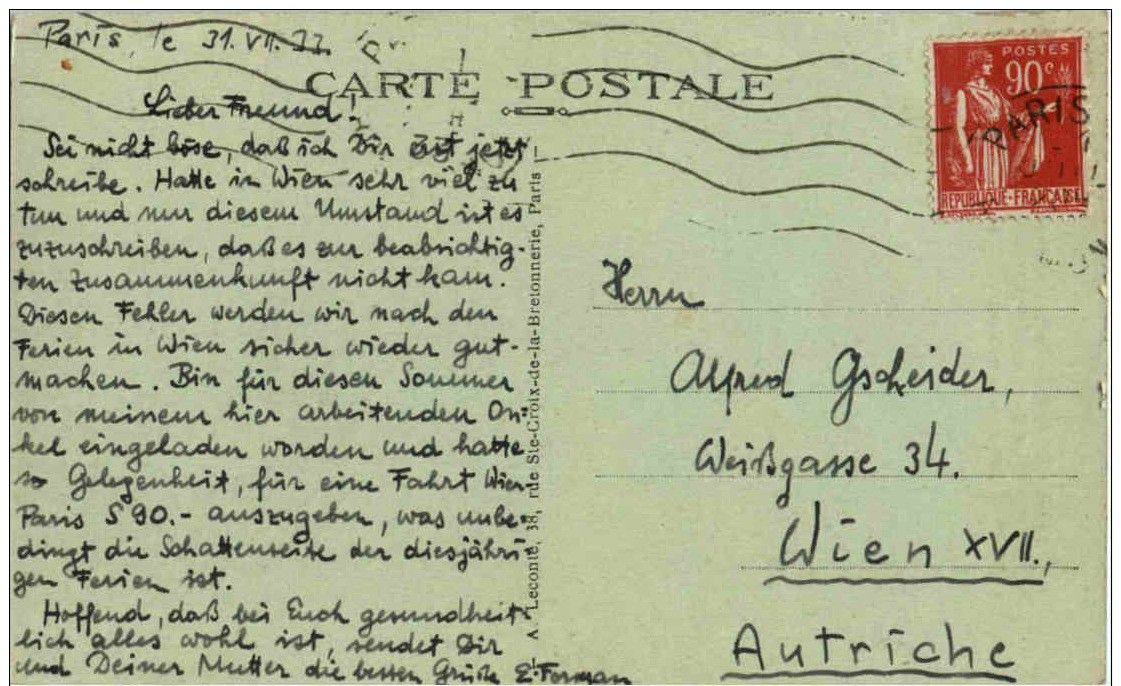 Paris, le 31. VII. 33
CARTE POSTALE
Lieber Freund!
Sei nicht böse, daß ich Dir erst jetzt
schreibe. Hatte in Wien sehr viel zu
tun und nur diesem Umstand ist es
zuzuschreiben, daß es zur beabsichtig-
ten Zusammenkunft nicht kam.
Diesen Fehler werden wir nach den
Ferien in Wien sicher wieder gut-
machen. Bin für diesen Sommer
von meinem hier arbeitenden On-
kel eingeladen worden und hatte
so Gelegenheit, für eine Fahrt Wien-
Paris S 90.- auszugeben, was unbe-
dingt die Schattenseite der diesjähri-
gen Ferien ist.
Hoffend, daß bei Euch gesundheit-
lich alles wohl ist, sendet Dir
und Deiner Mutter die besten Grüße E. Forman
A. Leconte, 38, rue Ste-Croix-de-la-Bretonnerie, Paris
POSTES
90c
PARIS
REPUBLIQUE-FRANÇAISE
Herrn
Alfred Gscheider,
Weißgasse 34.
Wien XVII.,
Autriche